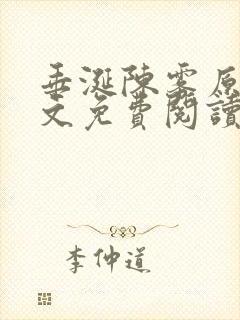 垂涎陳雾原
文免費閱讀
李仲道